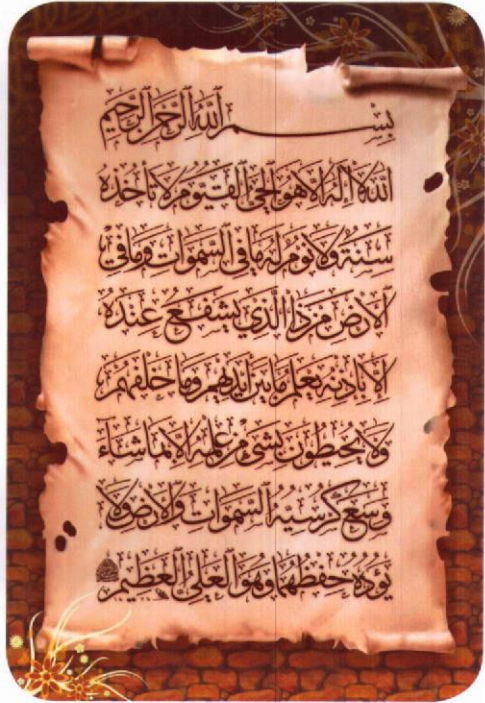 بسم الله الرحمن الرحيم
الله لا إله إلا هو الحي القيوم لا تأخذه
سنة ولا نوم له ما في السموات وما في
الأرض من ذا الذي يشفع عنده
إلا بإذنه يعلم ما بين أيديهم وما خلفهم
ولا يحيطون بشيء من علمه إلا بما شاء
وسع كرسيه السموات والأرض ولا
يؤده حفظهما وهو العلي العظيم